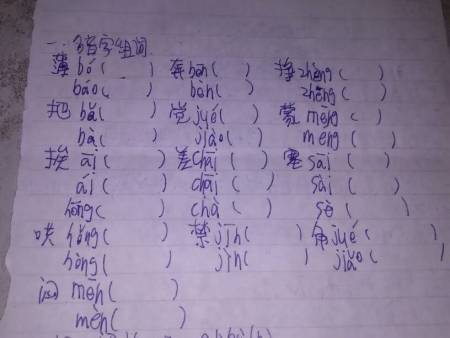 一.多音字组词
薄 bó( ) 奔 bēn( ) 挣 zhèng( )
báo( ) bèn( ) zhēng( )
把 bǎ( ) 觉 jué( ) 蒙 měng( )
bà( ) jiào( ) méng( )
挨 āi( ) 差 chāi( ) 塞 sāi( )
ái( ) chāi( ) sài( )
hōng( ) chà( ) sè( )
哄 hǒng( ) 禁 jīn( ) 角 jué( )
hòng( ) jìn( ) jiǎo( )
闷 mēn( )
mèn( )